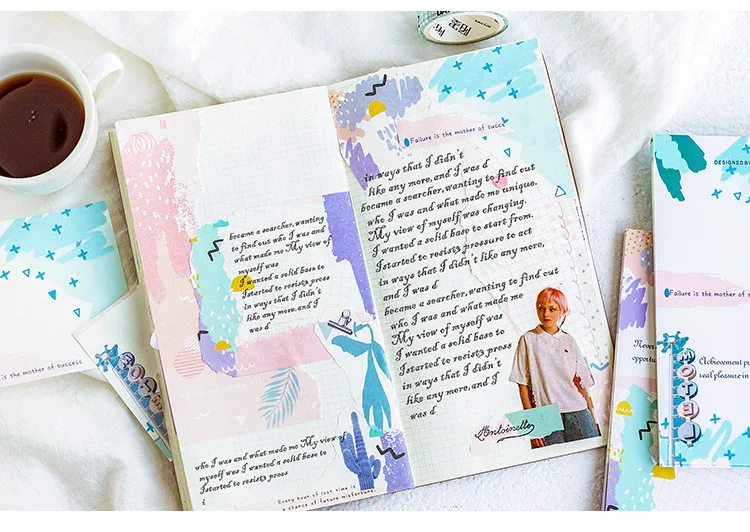 became a searcher, wanting
to find out who I was and
what made me My view of
myself was
I wanted a solid base to
I started to resists press
in ways that I didn't
like any more, and I
was d
who I was and what made me My view of
myself was I wanted a solid base to
I started to resists press
i
Every hour of lost time is
a chance of future misfortune.
Failure is the mother of succe
in ways that I didn't
like any more, and I was d
became a searcher, wanting to find out
who I was and what made me unique.
My view of myself was changing.
I wanted a solid base to start from.
I started to resists pressure to act
in ways that I didn't like any more,
and I was d
became a searcher, wanting to find out
who I was and what made me
My view of myself was
I wanted a solid base to
I started to resists press
in ways that I didn't
like any more, and I
was d
Antoinette
is the mother of success
MOTEL
DESIGNED BY
Failure is the mother of s
Never
opportu
Achievement p
real pleasure in
MOTEL